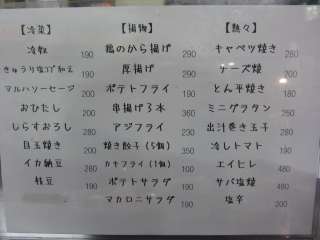 【冷菜】
冷奴 190
きゅうり塩コブ和え 190
マルハソーセージ 200
おひたし 200
しらすおろし 280
目玉焼き 200
イカ納豆 280
枝豆 190
【揚物】
鶏のから揚げ 290
厚揚げ 290
ポテトフライ 190
串揚げ3本
アジフライ
焼き餃子(5個)
カキフライ(3個)
ポテトサラダ 190
マカロニサラダ 190
【熱々】
キャベツ焼き 280
チーズ焼
とん平焼き
ミニグラタン
出汁巻き玉子
冷しトマト
エイヒレ 480
サバ塩焼 480
塩辛 200